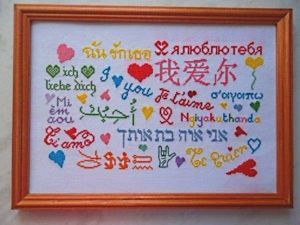 ฉันรักเธอ
я люблю тебя
ich
liebe dich
I
you
我爱尔
Je t'aime
σ'αγαπω
Mi
èm
aou
أحبك
Ngiyakuthanda
Ti amo
אני אוה בת אותך
Te Quier